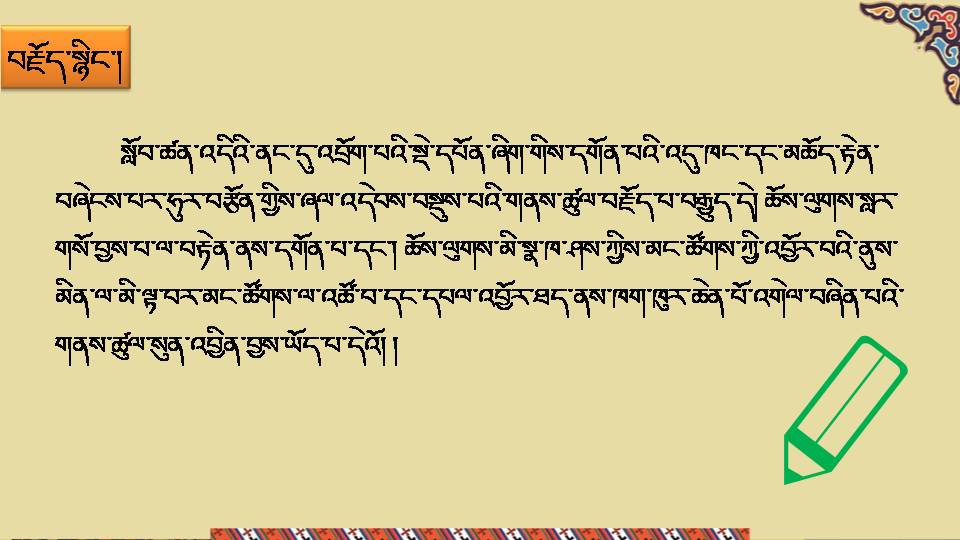 བརྗོད་སྙིང་།
སློབ་ཚན་འདིའི་ནང་དུ་འབྲོག་པའི་སྡེ་དཔོན་ཞིག་གིས་དགོན་པའི་འདུ་ཁང་དང་མཆོད་རྟེན་
བཞེངས་པར་ཧུར་བརྩོན་གྱིས་ཞལ་འདེབས་བསྡུས་པའི་གནས་ཚུལ་བརྗོད་པ་བརྒྱུད་དེ། ཆོས་ལུགས་སླར་
གསོ་བྱས་པ་ལ་བརྟེན་ནས་དགོན་པ་དང་། ཆོས་ལུགས་མི་སྣ་ཁ་ཤས་ཀྱིས་མང་ཚོགས་ཀྱི་འབྱོར་བའི་ནུས་
མིན་ལ་མི་ལྟ་བར་མང་ཚོགས་ལ་འཚོ་བ་དང་དཔལ་འབྱོར་ཐད་ནས་ཁག་ཁུར་ཆེན་པོ་འགེལ་བཞིན་པའི་
གནས་ཚུལ་སུན་འབྱིན་བྱས་ཡོད་པ་དེའོ། །